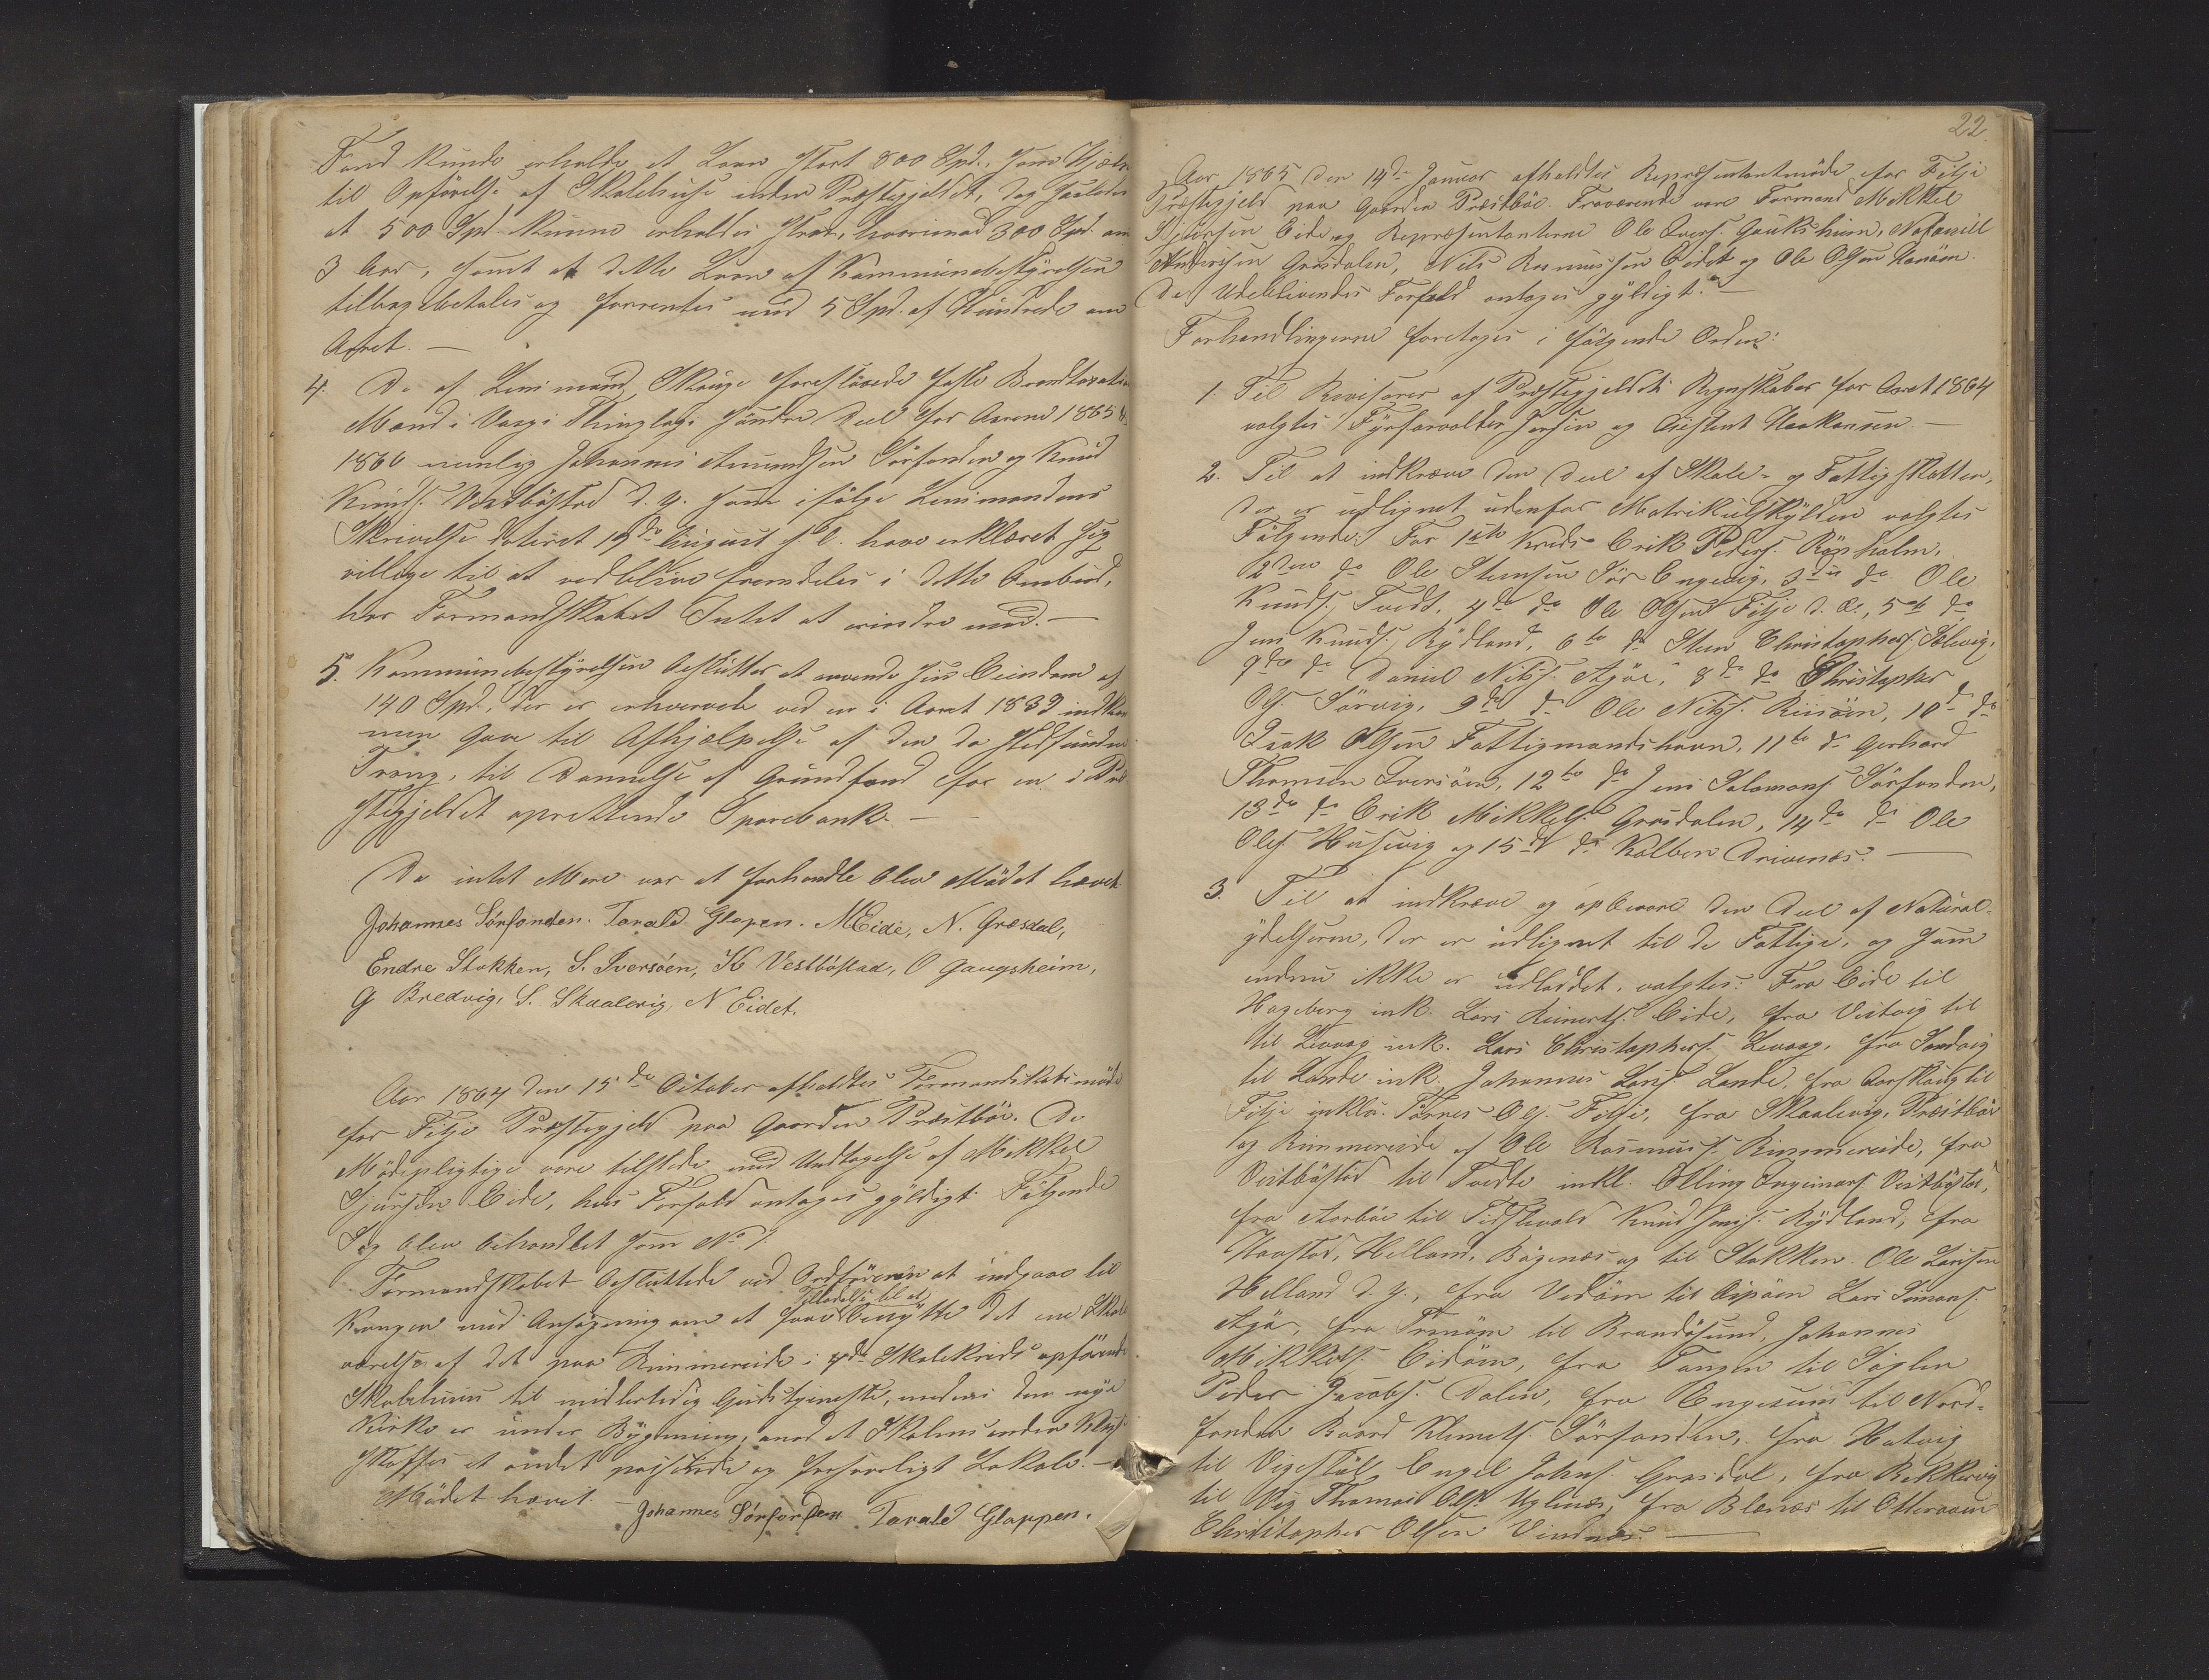 Fond kunde erholde et Laan stort 800 Spd. som Hjælp
til Opførelse af Skolehuse inden Præstegjeldet, dog saaledes
at 500 Spd kunne erholdes strax, hvorimod 300 Spd. om
3 Aar, samt at dette Laan af Kommunebestyrelsen
tilbagebetales og forrentes med 5 Spd. af Hundrede om
Aaret. —
4. De af Lensmand Skauge foreslaaede faste Brandtaxations
Mænd i Vaags Thinglags søndre Deel for Aarene 1865 &
1866 nemlig Johannes Amundsen Sørfonden og Knud
Knuds. Vestbøstad d. y. som ifølge Lensmandens
Skrivelse dateret 19de August d. A. have erklæret sig
villige til at vedblive fremdeles i dette Ombud,
har Formandskabet Intet at erindre mod. —
5. Kommunebestyrelsen beslutter at anvende sin Eiendom af
140 Spd, der er erhvervede ved en i Aaret 1839 indkom-
men Gave til Afhjælpelse af den da stedfundne
Trang, til Dannelse af Grundfond for en i Præ
stegjeldet oprettende Sparebank. —
Da intet Mere var at forhandle blev Mødet hævet.
Johannes Sørfonden. Tarald Glopen. MEide, N. Græsdal,
Endre Stokken, S. Iversöen, K Vestböstad, O Gaugsheim,
G Bredvig, S. Skaalevig, N Eidet.
Aar 1864 den 15de October afholdtes Formandskabsmøde
for Fitje Præstegjeld paa Gaarden Præstbøe. De
Mødepligtige vare tilstede med Undtagelse af Mikkel
Sjursen Eide, hvis Forfald antages gyldigt. Følgende
Sag blev behandlet som No 1.
Formandskabet besluttede ved Ordføreren at indgaae til
Kongen med Ansøgning om at faae Tilladelse til at benytte det ene Skole
værelse af det paa Rimmereide i 4de Skolekreds opførende
Skolehuus til midlertidig Gudstjeneste, medens den nye
Kirke er under Bygning, mod at Skolens anden Klasse
skaffes et andet passende og forsvarligt Lokale. —
Mødet hævet. — Johannes Sørfonden Tarald Gloppen.
22.
Aar 1865 den 14de Januar afholdtes Repræsentantmøde for Fitje
Præstegjeld paa Gaarden Præstbøe. Fraværende vare Formand Mikkel
Sjursen Eide og Repræsentanterne Ole Ivers. Gaukshiem, Natanill
Andersen Græsdalen, Nils Rasmussen Eidet og Ole Olsen Kanøen.
De Udeblivendes Forfald antages gyldigt. —
Forhandlingerne foretages i følgende Orden:
1. Til Revisorer af Præstegjeldets Regnskaber for Aaret 1864
valgtes Fyrforvalter Jersin og Assistent Haakonsen. —
2. Til at indkræve den Deel af Skole- og Fattigskatten,
der er udlignet udenfor Matrikulskylden valgtes
Følgende: For 1ste Kreds Erik Peders. Røxholm.
2den do Ole Steensen Sør Engevig, 3die do Ole
Knuds. Tvedt, 4de do Ole Olsen Fitje d. Æ., 5te do
Jens Knuds. Rydland, 6te do Steen Christophers. Sælevig,
7de do Daniel Nils. Agøe, 8de do Christopher
Ols. Sørvig, 9de do Ole Nils. Risøen, 10de do
Isak Olsen Fattigmandshavn, 11te do Gerhard
Thomsen Iversøen, 12te do Jens Salomons. Sørfonden,
13de do Erik Mikkels. Græsdalen, 14de do Ole
Ols. Husevig og 15de do Kolben Drivenæs. —
3. Til at indkræve og opbevare den Deel af Natural-
ydelserne, der er udlignet til de Fattige, og som
endnu ikke er udloddet, valgtes: Fra Eide til
Hageberg ink. Lars Reinerts. Eide, fra Vestvig til
til Levaag ink. Lars Christophers. Levaag, fra Sandvig
til Lande ink. Johannes Lars. Lande, fra Aarskoug til
Fitje inklu. Tørres Ols. Fitje, fra Skaalevig, Præstbøe
og Rimmereide af Ole Rasmus. Rimmereide, fra
Vestbøsted til Tvedte inkl. Elling Ingemars. Vestbøstad,
fra Aarbøe til Tidslevold Knud Jens. Rydland, fra
Haastad, Helland, Bøgenæs og til Stokken Ole Larsen
Helland d. y., fra Vedøen til Aspøen Lars Simons.
Agø, fra Trænøen til Brandøsund, Johannes
Mikkels. Eidøen, fra Tangen til Siglen
Peder Jacobs. Dalen, fra Engesund til Nord-
fonden Baard Klemets. Sørfonden, fra Hatvig
til Vigestøl, Engel Johns. Græsdal, fra Rekkevig
til Vig Thomas Ols. Uglenæs, fra Blænæs til Otteraaen
Christopher Olsen Vindnæs. —